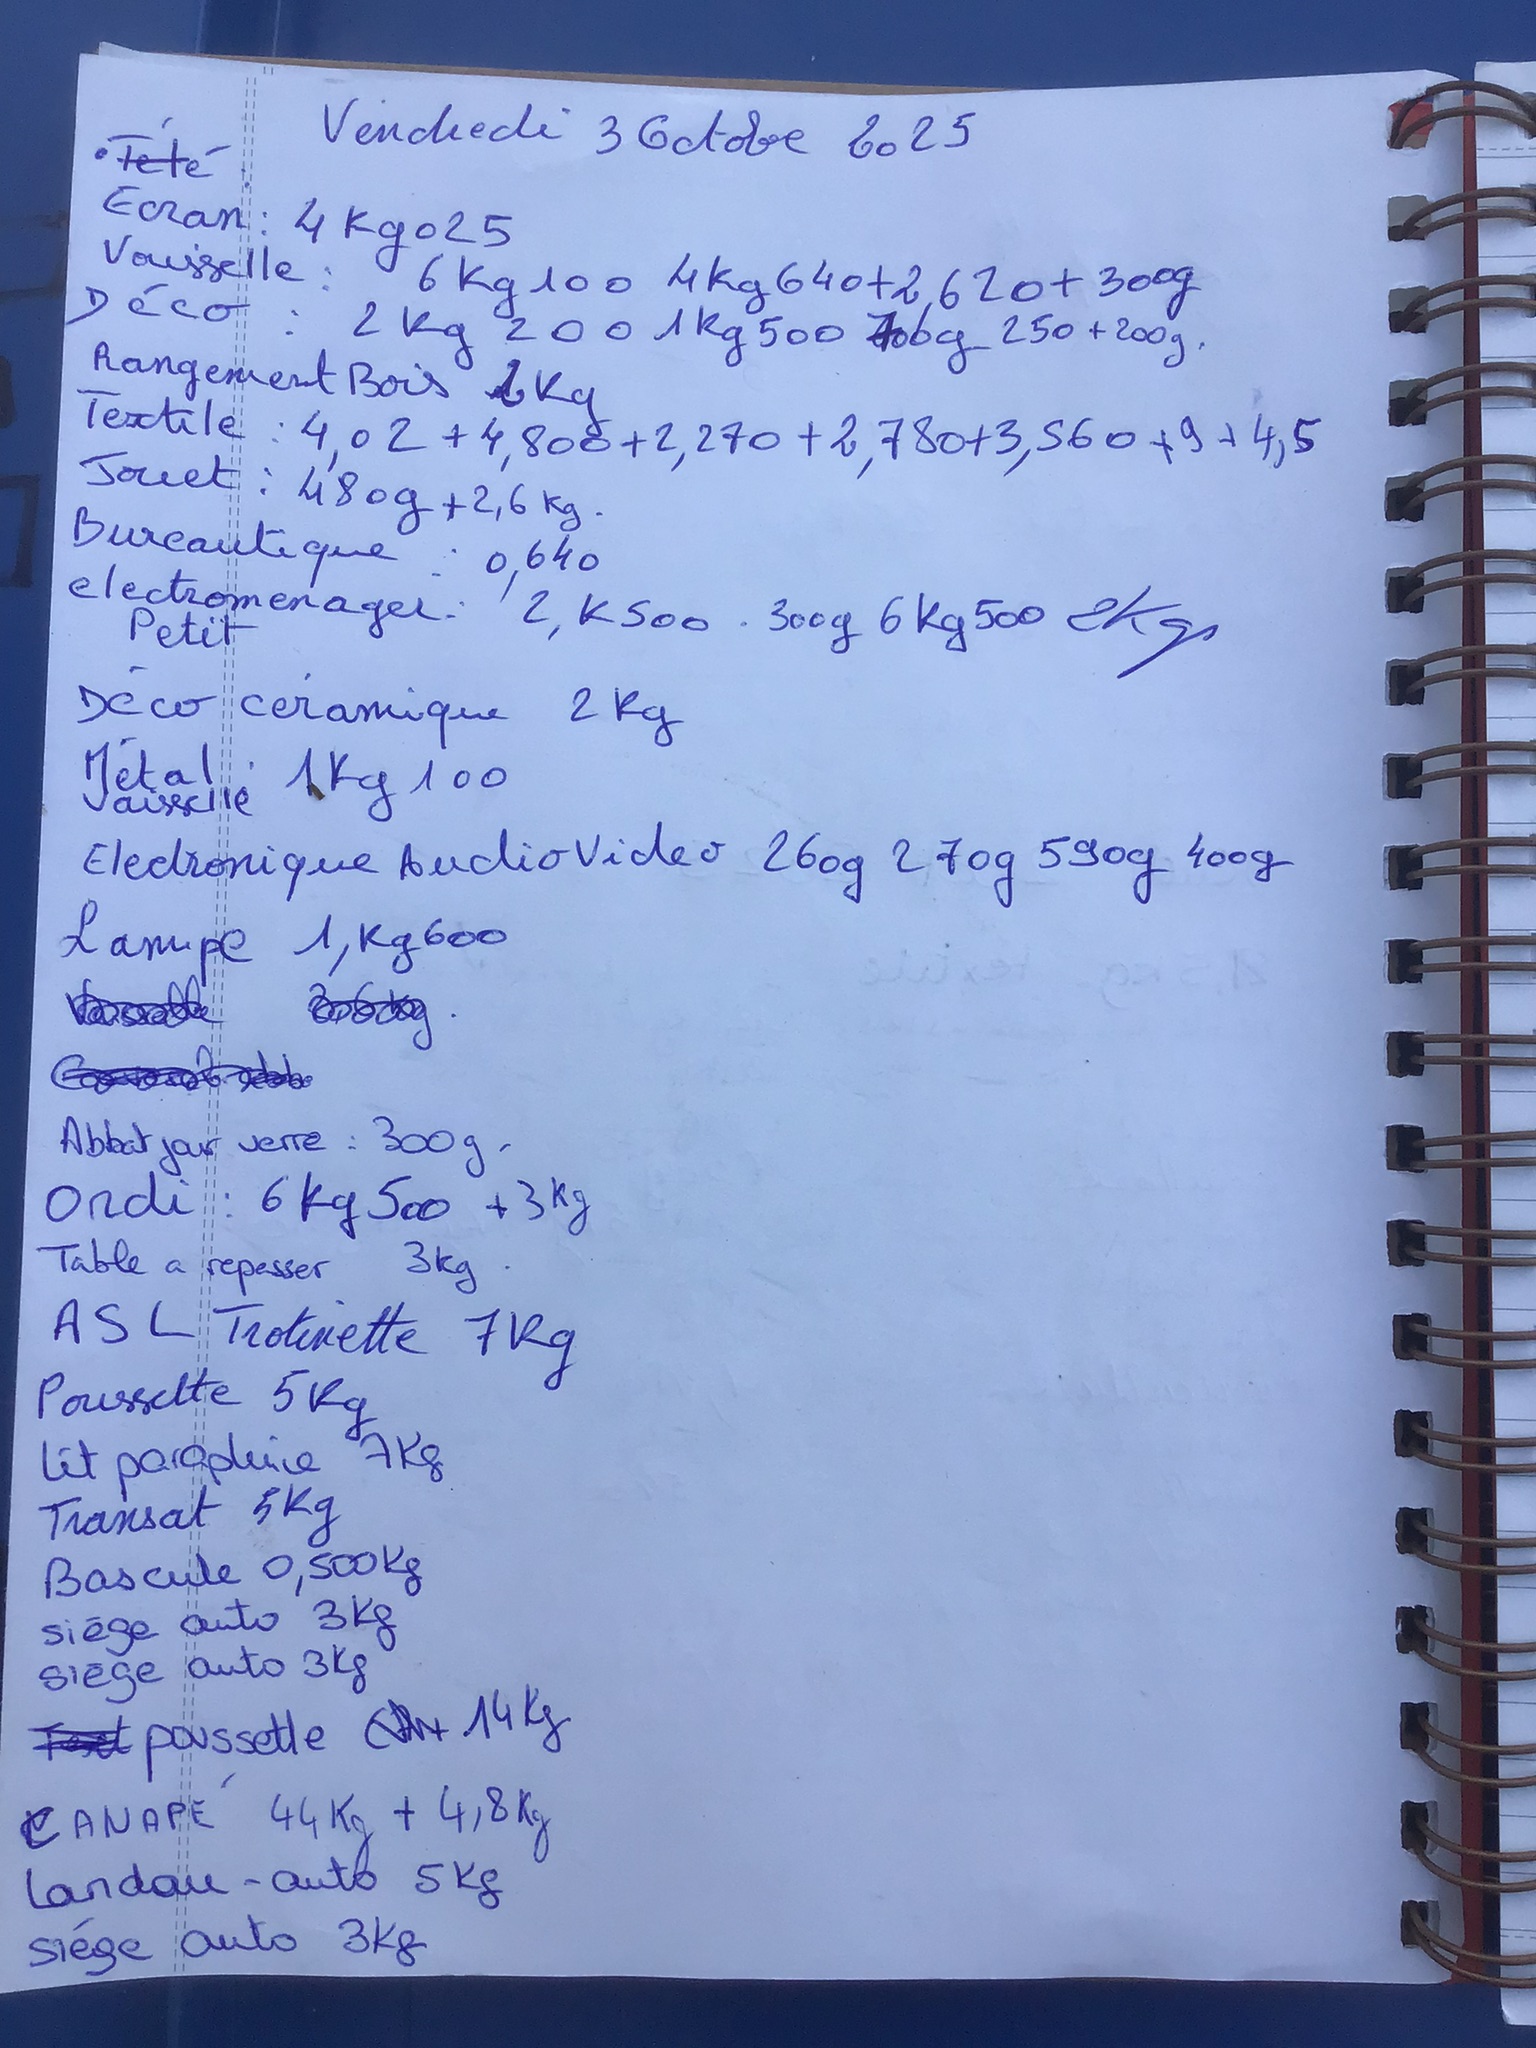 Vendredi 3 Octobre 2025
• Télé
Ecran : 4 Kg 025
Vaisselle : 6 Kg 100 4kg 640+2,620+300g
Déco : 2 Kg 200 1 kg 500 250 + 200g.
Rangement Bois Kg
Textile : 4,02 + 4,800+2,270 + 2,780+3,560 +9 + 4,5
Jouet : 480g +2,6 kg.
Bureautique : 0,640
electromenager : 2,K500 . 300g 6 Kg 500 2Kgs
Petit
Déco céramique 2 Kg
Métal : 1 Kg 100
vaisselle
Electronique Audio Video 260g 270g 590g 400g
Lampe 1,Kg600
Abbat jour verre : 300g.
Ordi : 6 kg 500 +3 kg
Table a repasser 3kg.
ASL Trotinette 7 Kg
Poussette 5 Kg
Lit parapluie 7Kg
Transat 5Kg
Bascule 0,500Kg
siége auto 3Kg
siége auto 3Kg
poussette 14 Kg
CANAPÉ 44 Kg + 4,8 Kg
Landau - auto 5 Kg
siége auto 3Kg